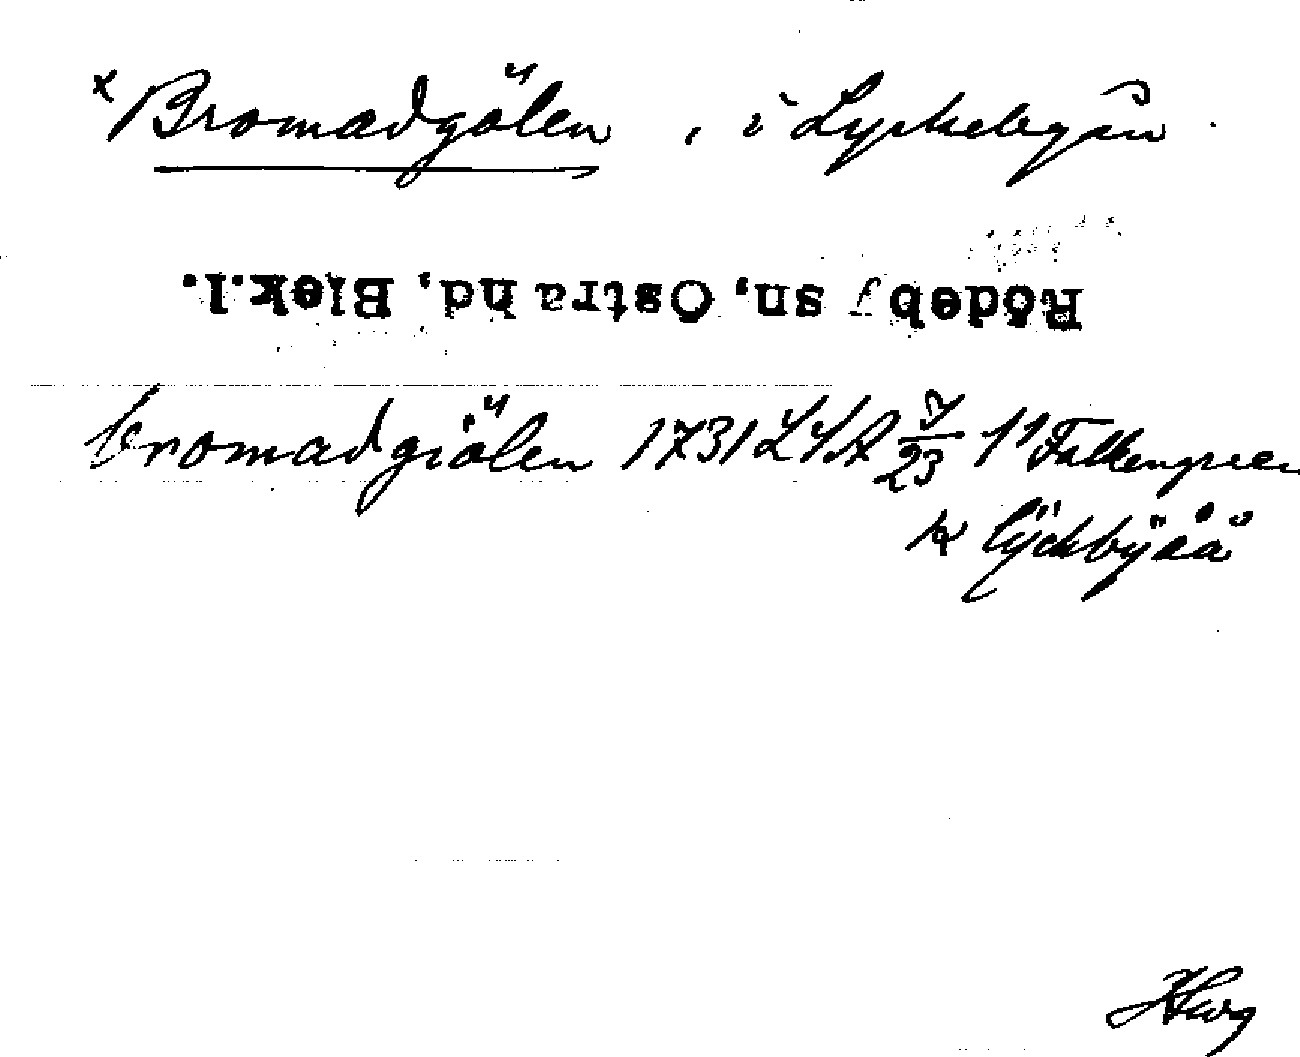 x Bromadgölen, i Lyckebyån.
Rödeby sn, Östra hd, Blek.l.
bromadgiölen 1731 LSA 7/23 11 Falkengreen
lÿckbÿåå